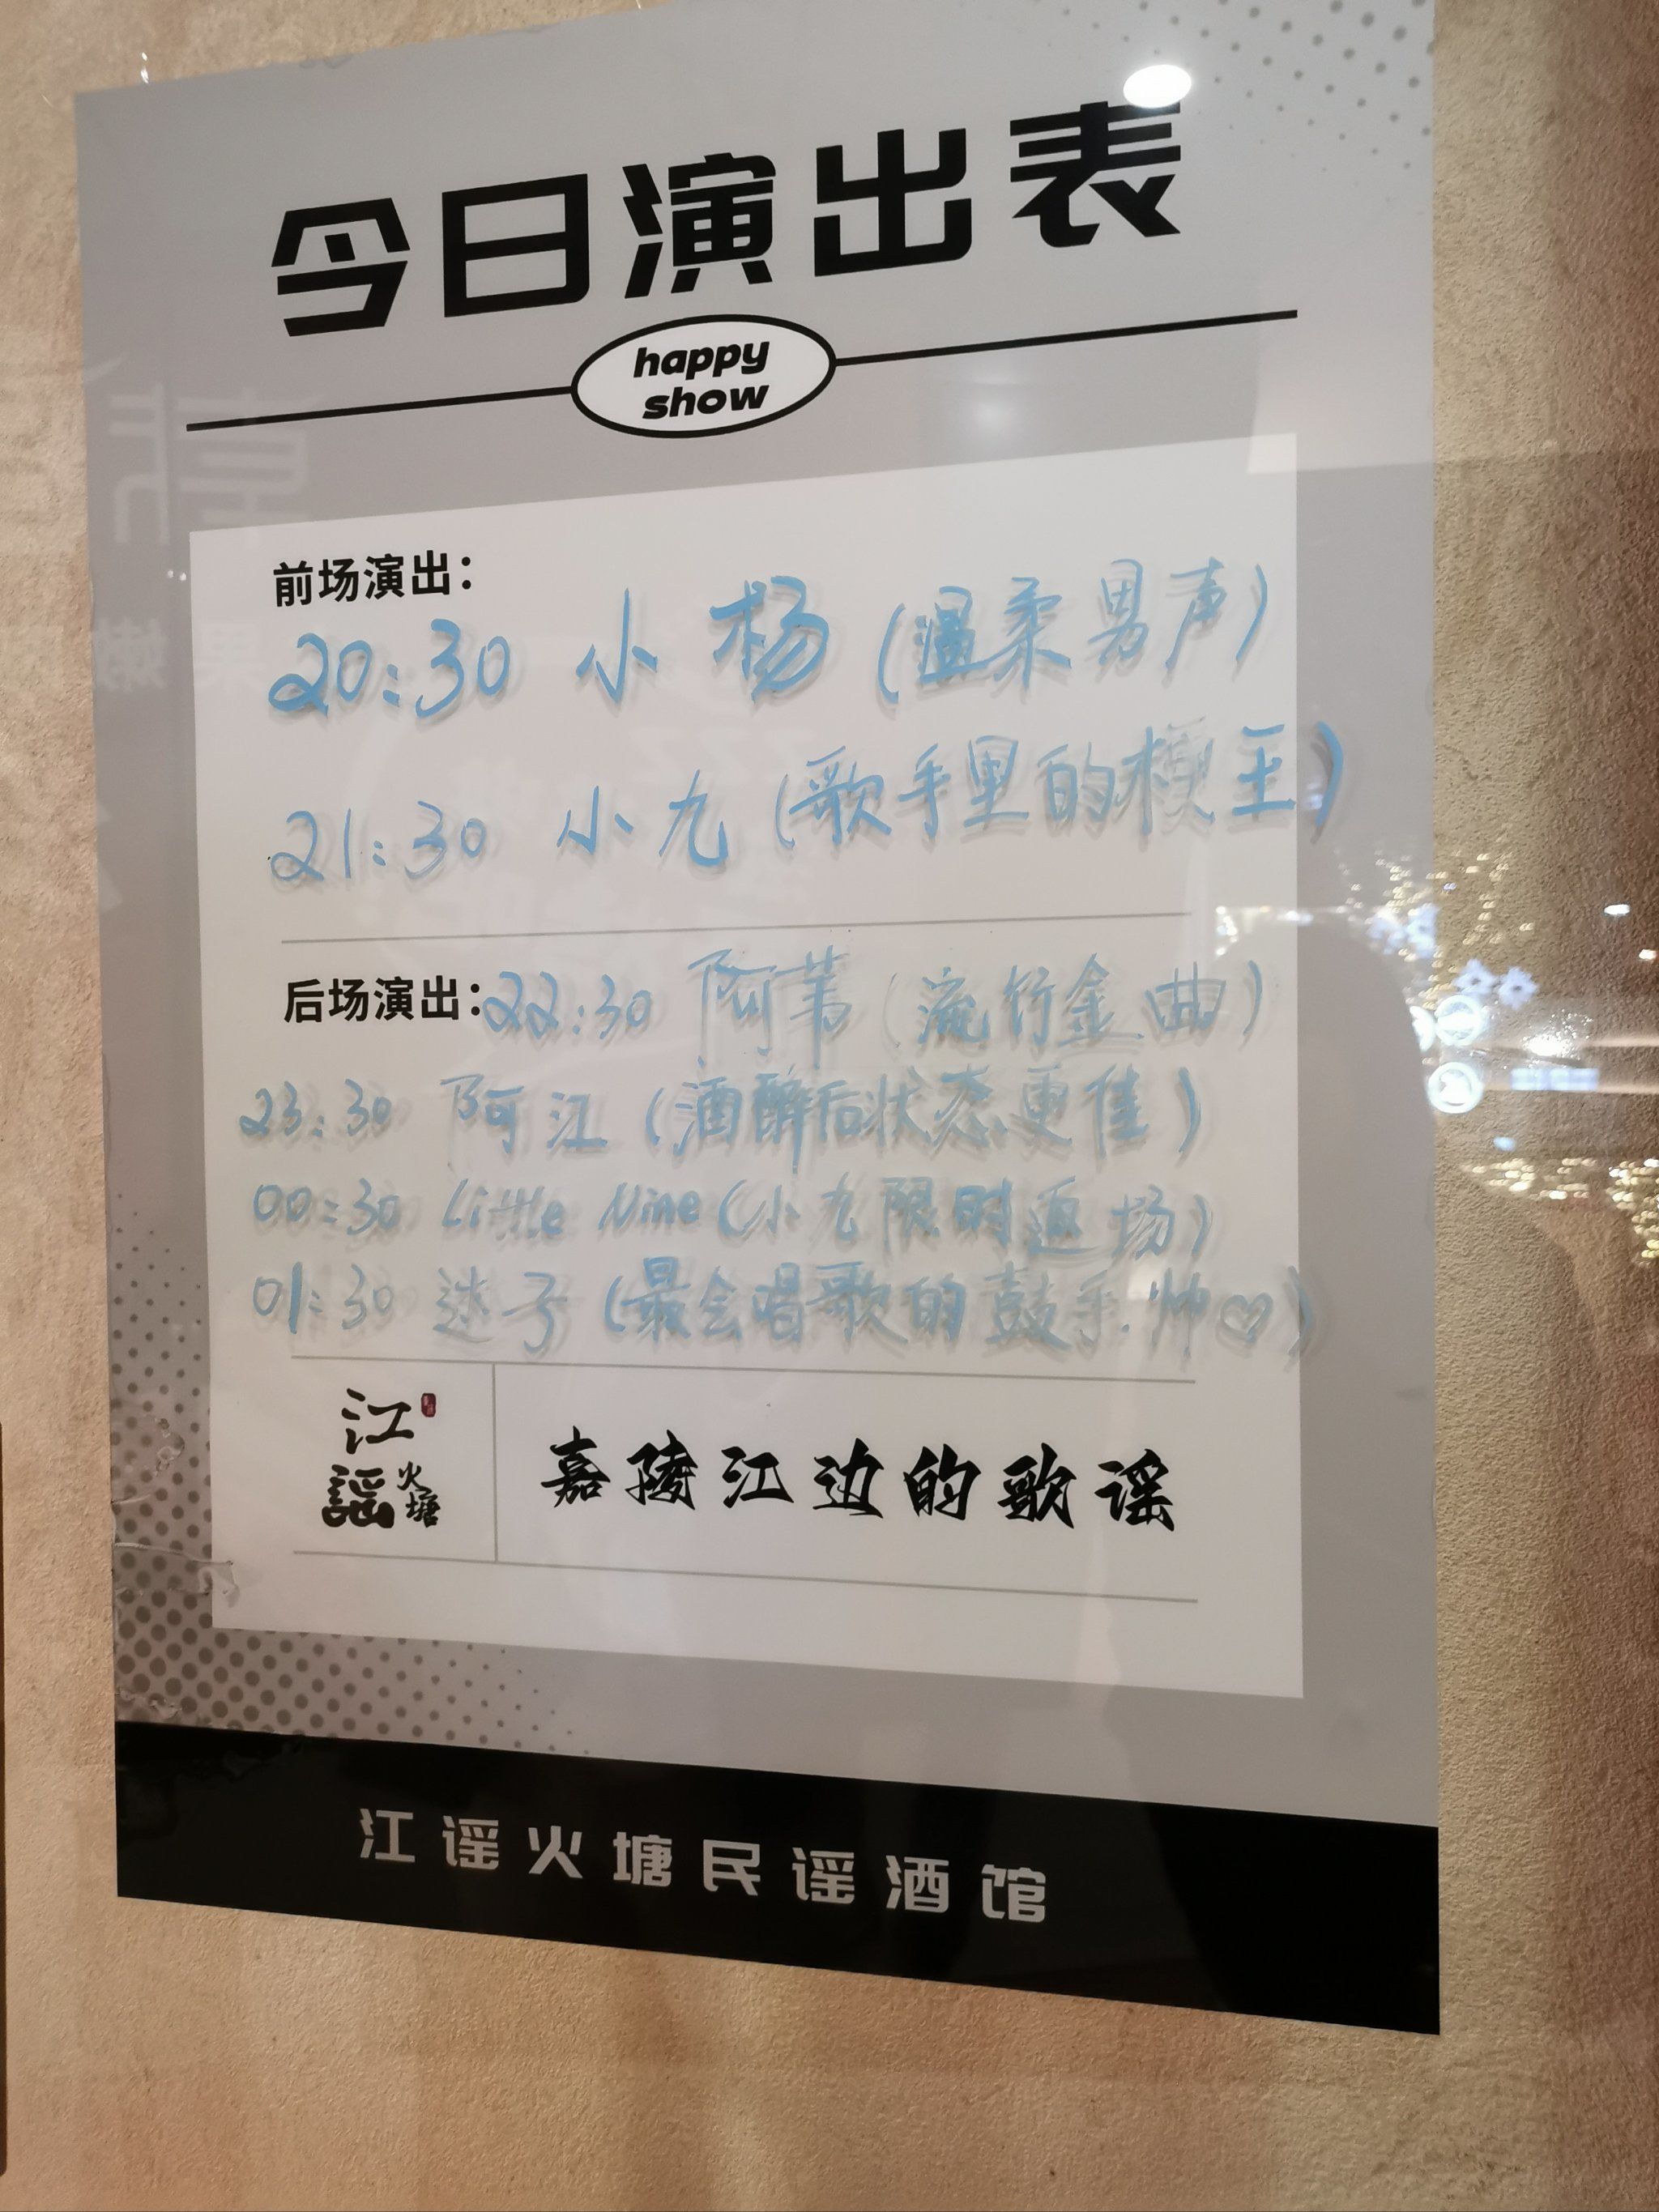 今日演出表
happy
show
前场演出：
20:30 小杨（温柔男声）
21:30 小九（歌手里的梗王）
后场演出：22:30 阿苇（流行金曲）
23:30 阿江（酒醉后状态更佳）
00:30 Little Nine（小九限时返场）
01:30 迷子（最会唱歌的鼓手.帅♡）
江
謡 火塘
嘉陵江边的歌谣
江谣火塘民谣酒馆